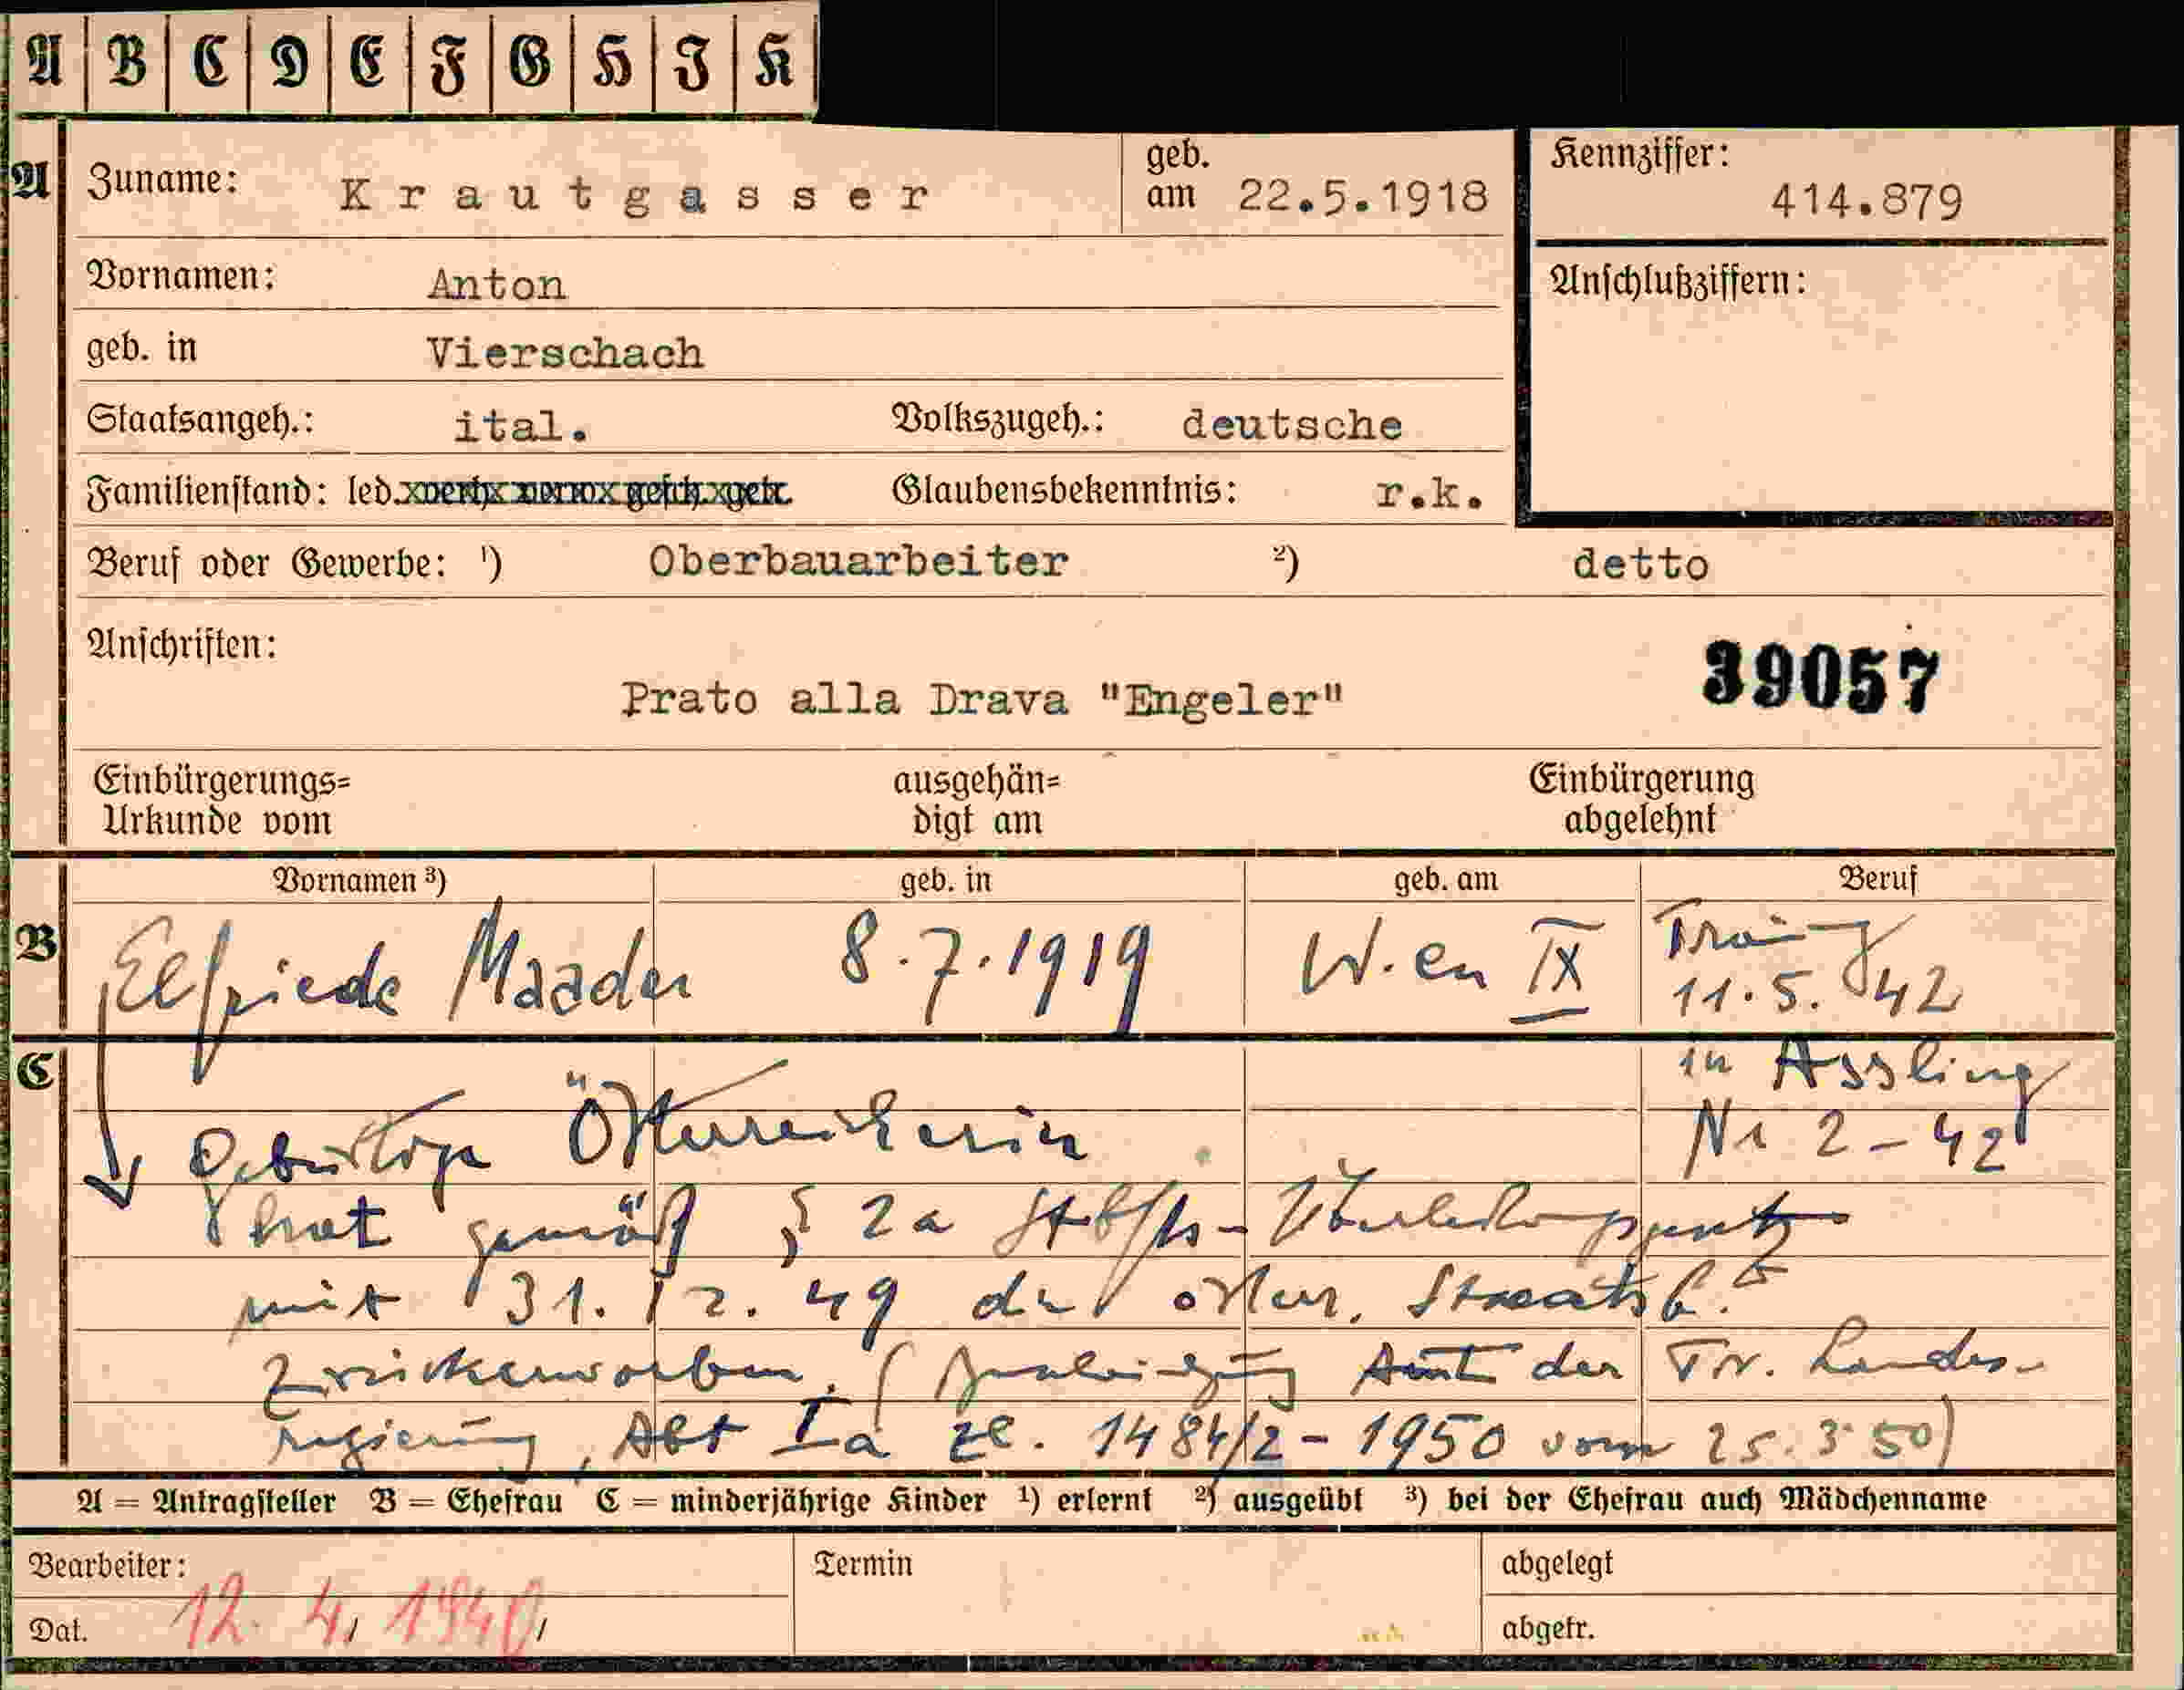 A B C D E F G H I K
A Zuname: Krautgasser geb. am 22.5.1918 Kennziffer: 414.879
Vornamen: Anton Anschlußziffern:
geb. in Vierschach
Staatsangeh.: ital. Volkszugeh.: deutsche
Familienstand: led. verh. verw. gesch. getr. Glaubensbekenntnis: r.k.
Beruf oder Gewerbe: 1) Oberbauarbeiter 2) detto
Anschriften:
Prato alla Drava "Engeler" 39057
Einbürgerungs= ausgehän= Einbürgerung
Urkunde vom digt am abgelehnt
Vornamen 3) geb. in geb. am Beruf
B Elfriede Maader 8.7.1919 Wien IX Trauung
11.5.42
C in Assling
Gebürtige Österreicherin Nr 2-42
hat gemäß § 2a Stbfts-Überleitungsgesetz
mit 31.12.49 die österr. Staatsb.
zurückerworben. ( Amt der Tir. Landes-
regierung, Abt Ia Zl. 1484/2-1950 vom 25.3.50)
A = Antragsteller B = Ehefrau C = minderjährige Kinder 1) erlernt 2) ausgeübt 3) bei der Ehefrau auch Mädchenname
Bearbeiter: Termin abgelegt
Dat. 12. 4. 1940 abgetr.